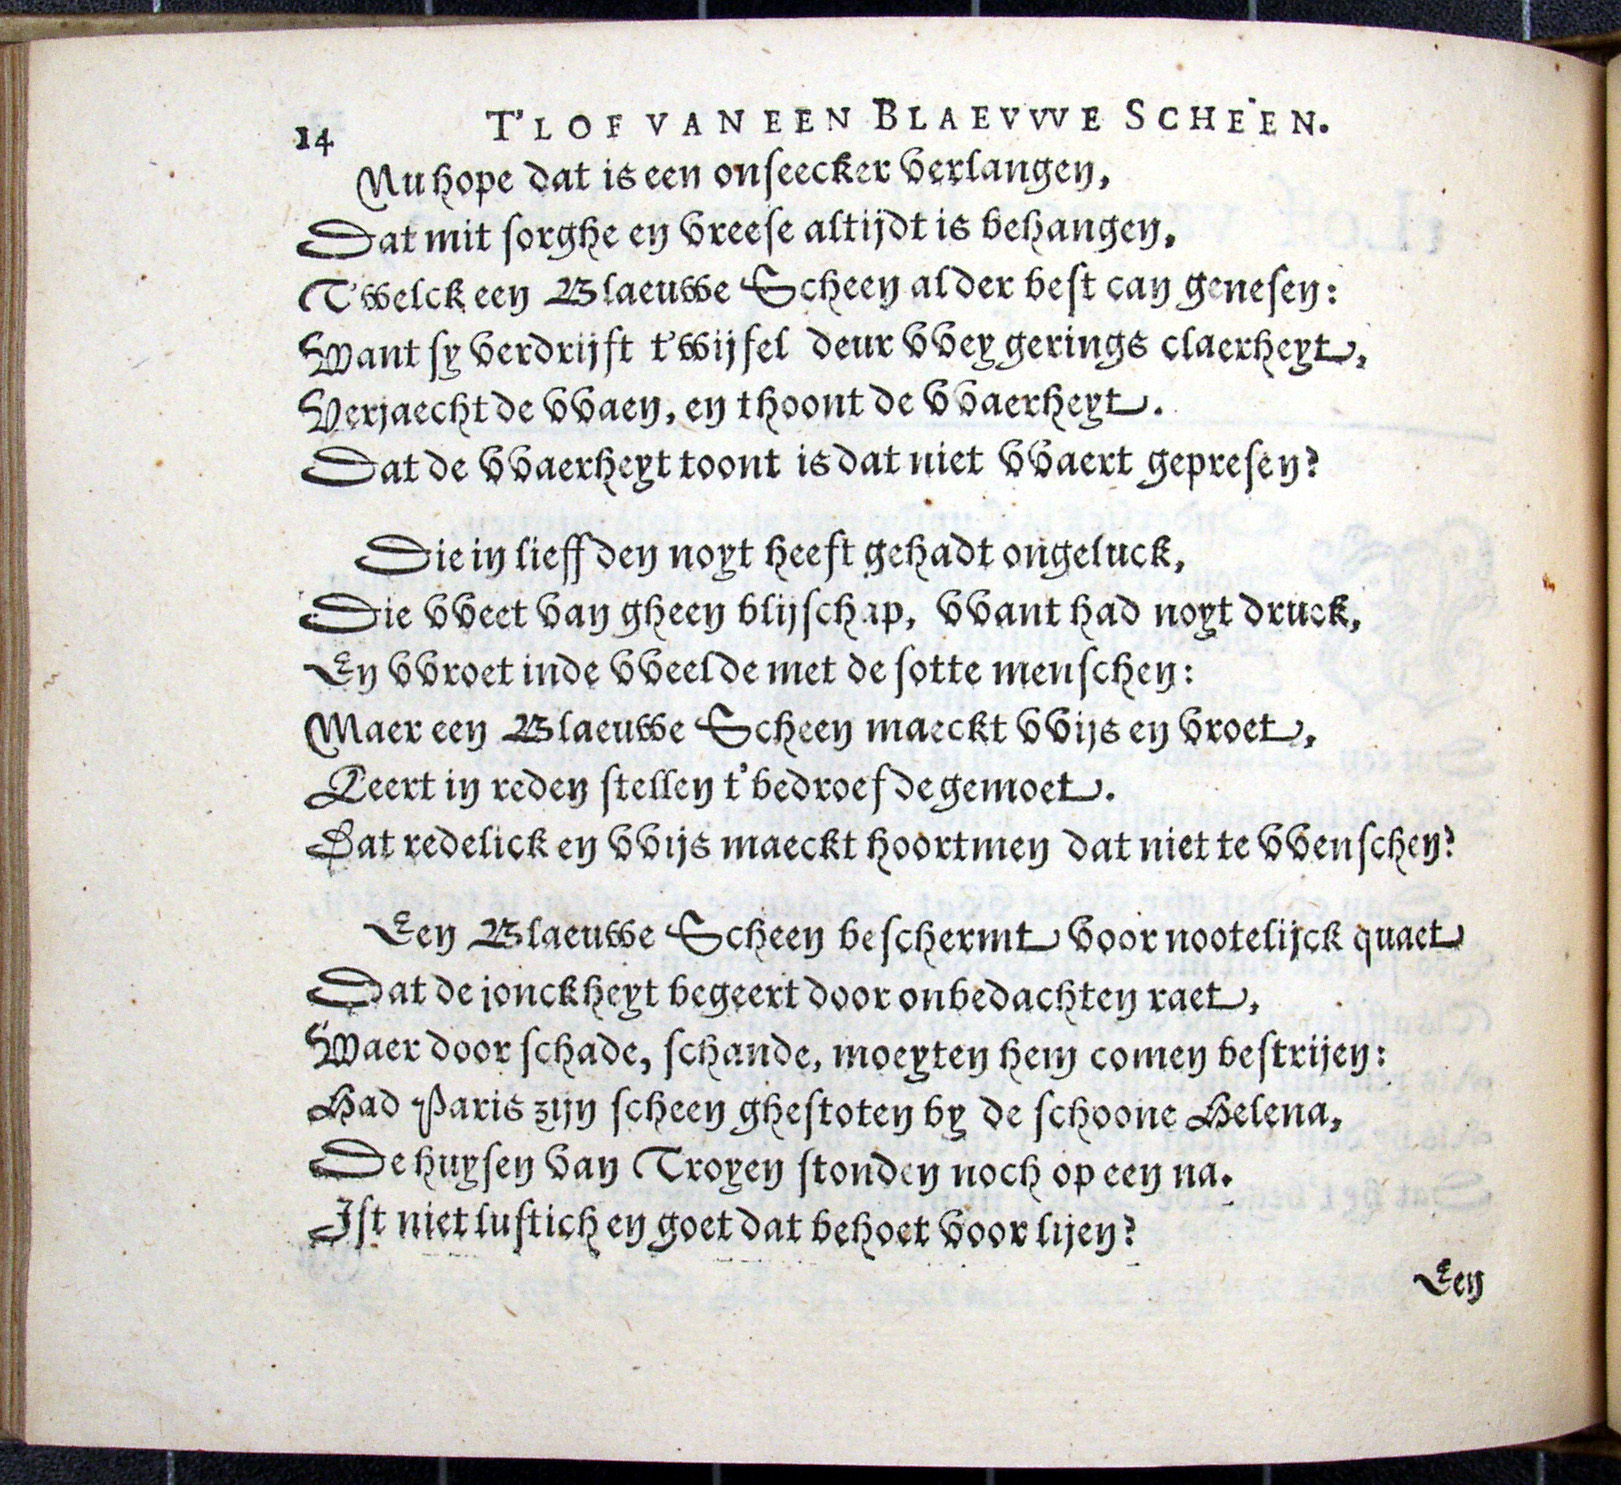 14 T'LOF VAN EEN BLAEVWE SCHEEN.
Nu hope dat is een onseecker verlangen,
Dat mit sorghe en vreese altijdt is behangen,
T'welck een Blaeuwe Scheen alder best can genesen:
Want sy verdrijft t'wijfel deur vveygerings claerheyt,
Verjaecht de vvaen, en thoont de vvaerheyt.
Dat de vvaerheyt toont is dat niet vvaert gepresen?
Die in lieffden noyt heeft gehadt ongeluck,
Die vveet van gheen blijschap, vvant had noyt druck,
En vvroet inde vveelde met de sotte menschen:
Maer een Blaeuwe Scheen maeckt vvijs en vroet,
Leert in reden stellen t'bedroefde gemoet.
Dat redelick en vvijs maeckt hoortmen dat niet te vvenschen?
Een Blaeuwe Scheen beschermt voor nootelijck quaet
Dat de jonckheyt begeert door onbedachten raet,
Waer door schade, schande, moeyten hem comen bestrijen:
Had Paris zijn scheen ghestoten by de schoone Helena,
De huysen van Troyen stonden noch op een na.
Ist niet lustich en goet dat behoet voor lijen?
Een